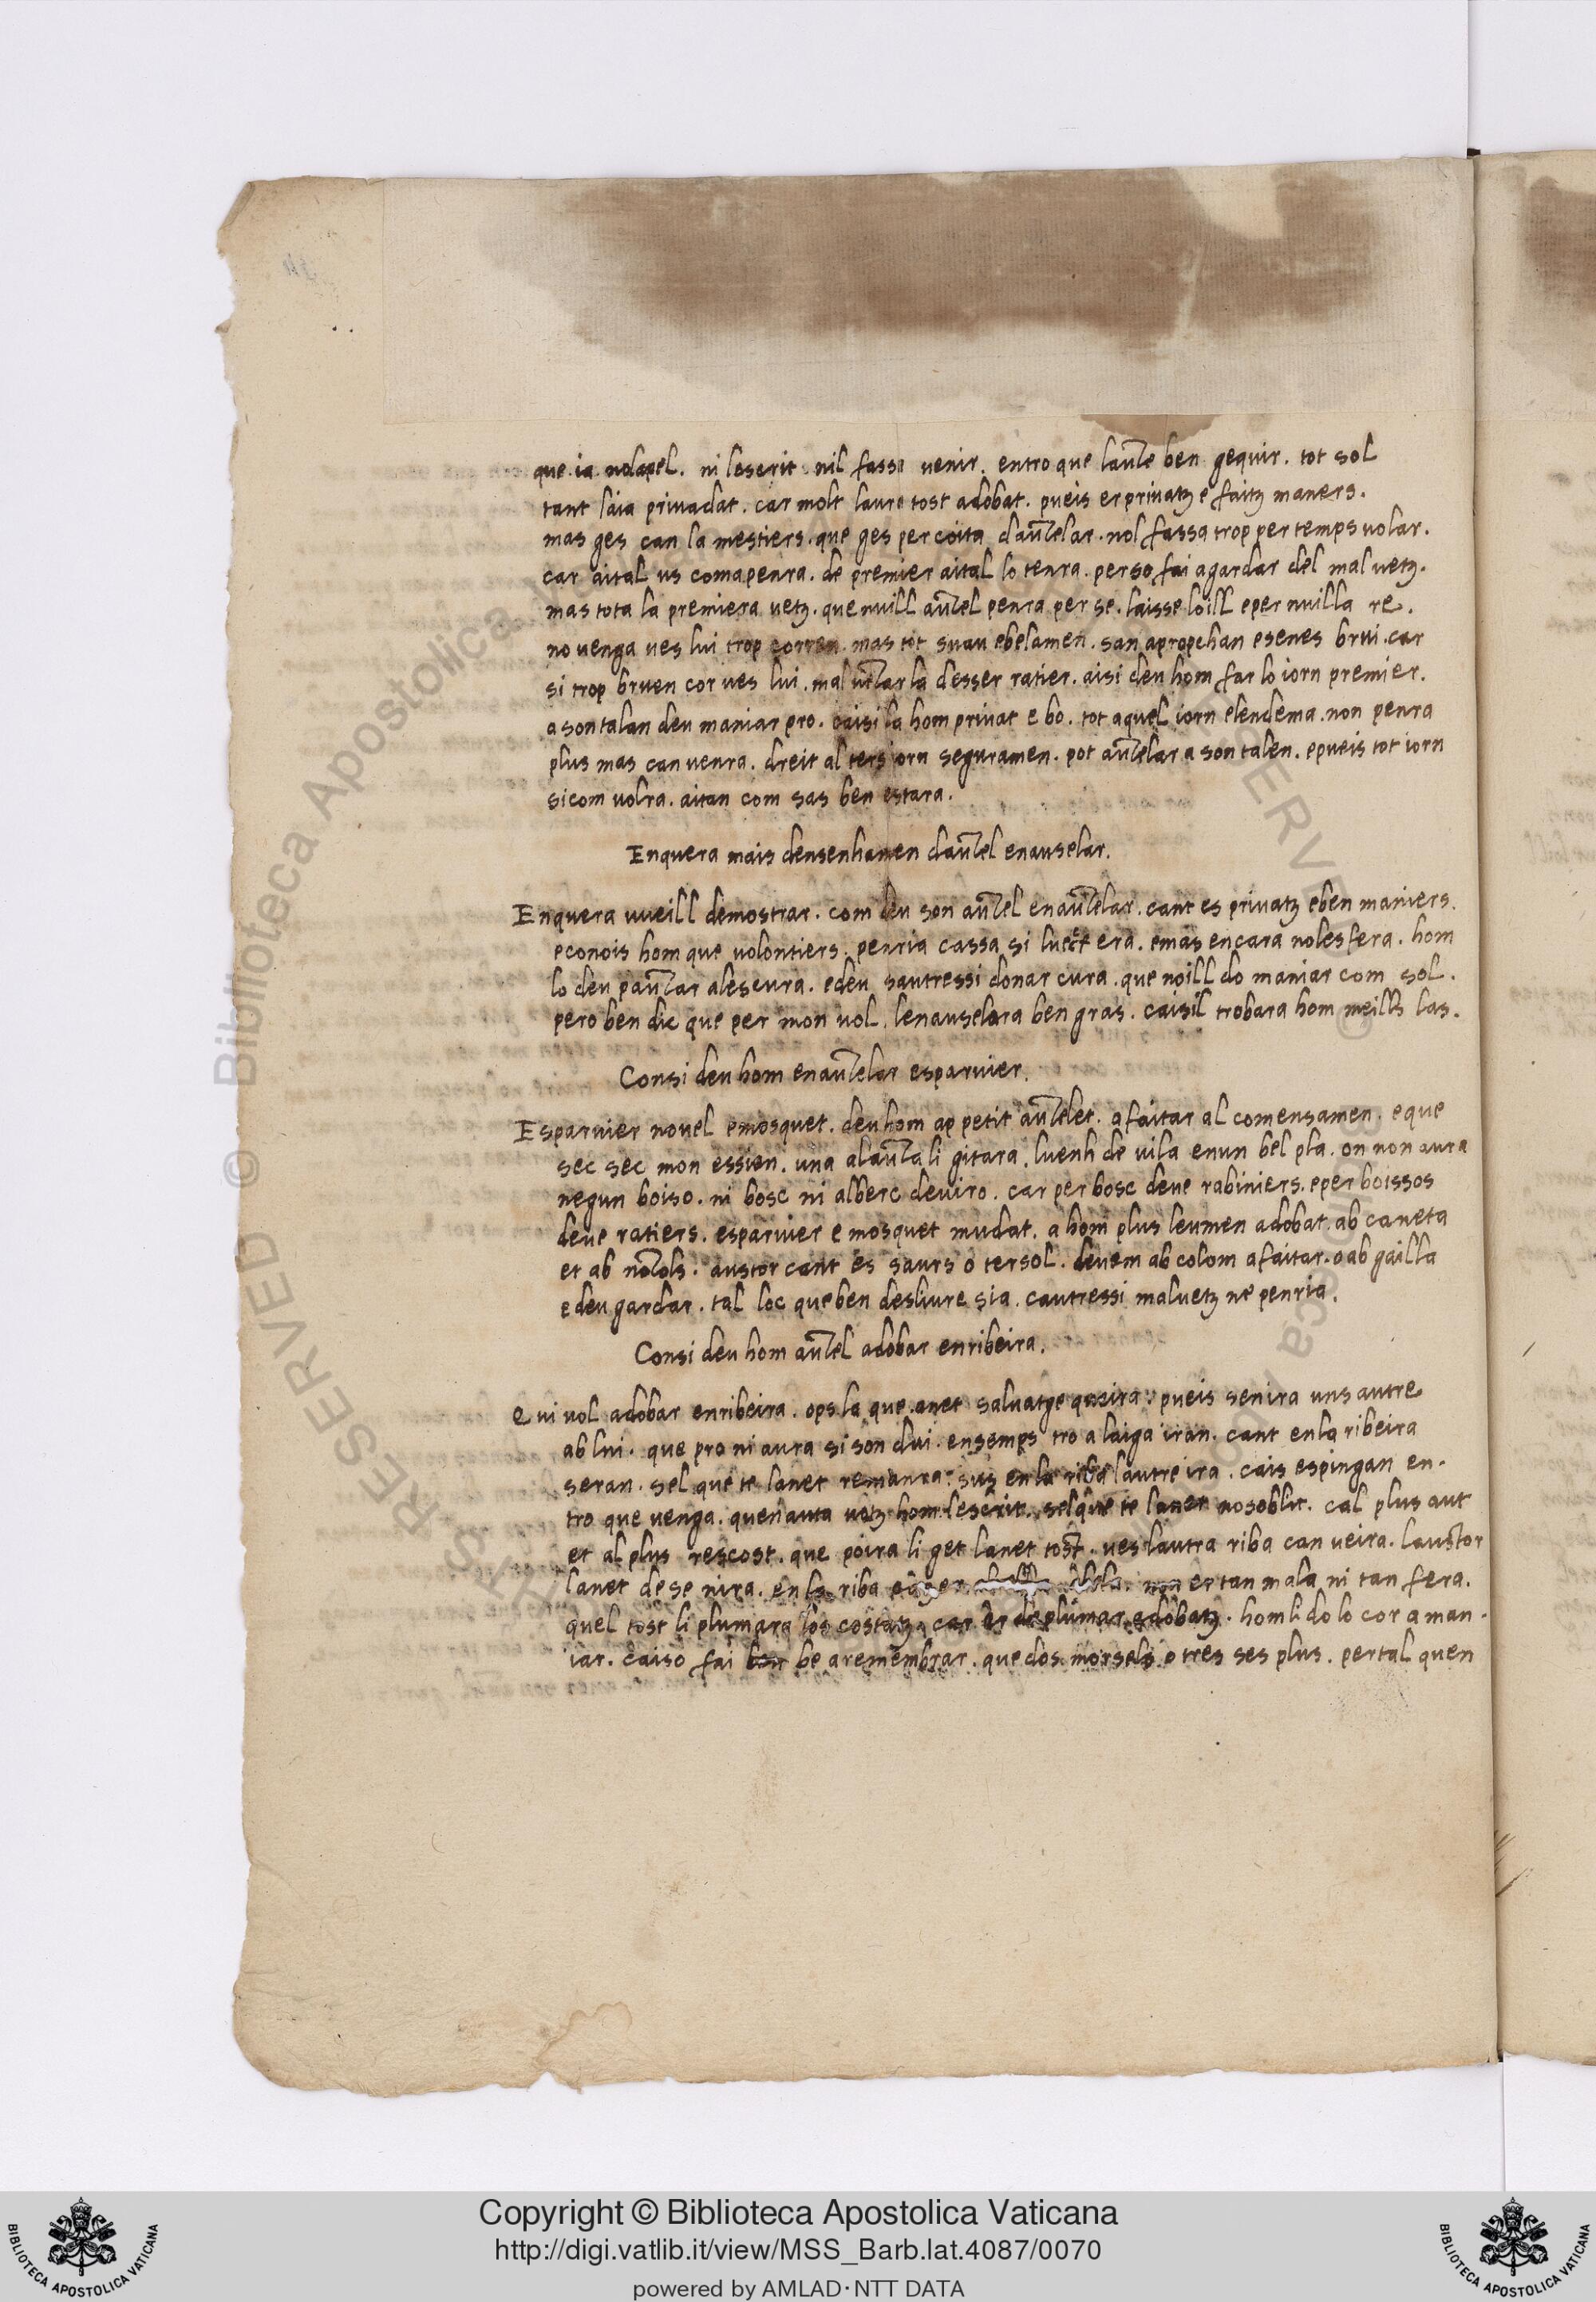 que ia nolapel. ni lescrit nil fassa venir. entro que lautre ben gequir. tot sol
tant laia priuadat. car molt laure tost adobat. pueis er priuatz e faitz maners.
mas ges can la mestiers. que ges per coita dauzelar. nol fassa trop per temps uolar.
car aital us coma penra. de premier aital lo tenra. perso fai agardar del mal uetz.
mas tota la premiera uetz. que nuill auzel penra per se. laisse loill e per nuilla re.
no uenga ues lui trop corren. mas tot suau ebelamen. san apropchan esenes brui. car
si trop bruen cor ues lui. mal uezar la desser ratier. aisi deu hom far lo iorn premier.
a son talan deu maniar pro. caisi la hom priuat e bo. tot aquel iorn elendema. non penra
plus mas can uenra. dreit al ters iorn seguramen. pot auzelar a son talen. epueis tot iorn
sicom uolra. aitan com sas ben estara.
Enquera mais densenhamen dauzel enauselar.
Enquera uueill demostrar. com deu son auzel enauzelar. cant es priuatz eben maniers.
econois hom que uolontiers. penria cassa si luecx era. emas encara nolesfera. hom
lo deu pauzar alescura. edeu sautressi donar cura. que noill do maniar com sol.
pero ben dic que per mon uol. lenauselara ben gras. caisil trobara hom meills las.
Consi deu hom enauzelar esparuier.
Esparuier nouel emosquet. deu hom ap petit auzelet. afaitar al comensamen. e que
sec sec mon essien. una alauza li gitara. luenh de uila enun bel pla. on non aura
negun boiso. ni bosc ni alberc deuiro. car per bosc deue rabiniers. eper boissos
deue ratiers. esparuier e mosquet mudat. a hom plus leumen adobat. ab caneta
et ab nozols. austor cant es saurs o tersol. deuem ab colom afaitar. o ab gailla
e deu gardar. tal loc que ben desliure sia. cautressi maluetz ne penria.
Consi deu hom auzel adobar enribeira.
Qui uol adobar enribeira. ops la que anet saluatge queira. pueis senira uns autre
ab lui. que pro ni aura si son dui. ensemps tro a laiga iran. cant enla ribeira
seran. sel que te lanet remanra. sus en la riba lautre ira. cais espingan en-
tro que uenga. quenauta uotz hom lescrit. selque te lanet nosoblit. cal plus aut
et al plus rescost. que poira li get lanet tost. ues lautra riba can ueira. laustor
lanet de se nira. en la riba non er tan mala ni tan fera.
quel tost li plumara los costatz. car er de plumar adobatz. hom li do lo cor a man-
iar. caiso fai be aremembrar. que dos morsels o tres ses plus. per tal quen
Copyright © Biblioteca Apostolica Vaticana
http://digi.vatlib.it/view/MSS_Barb.lat.4087/0070
powered by AMLAD·NTT DATA